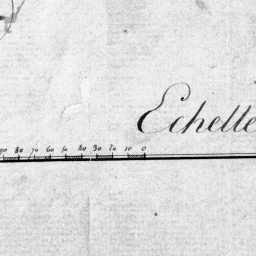 Echelle
90 80 70 60 50 40 30 20 10 0